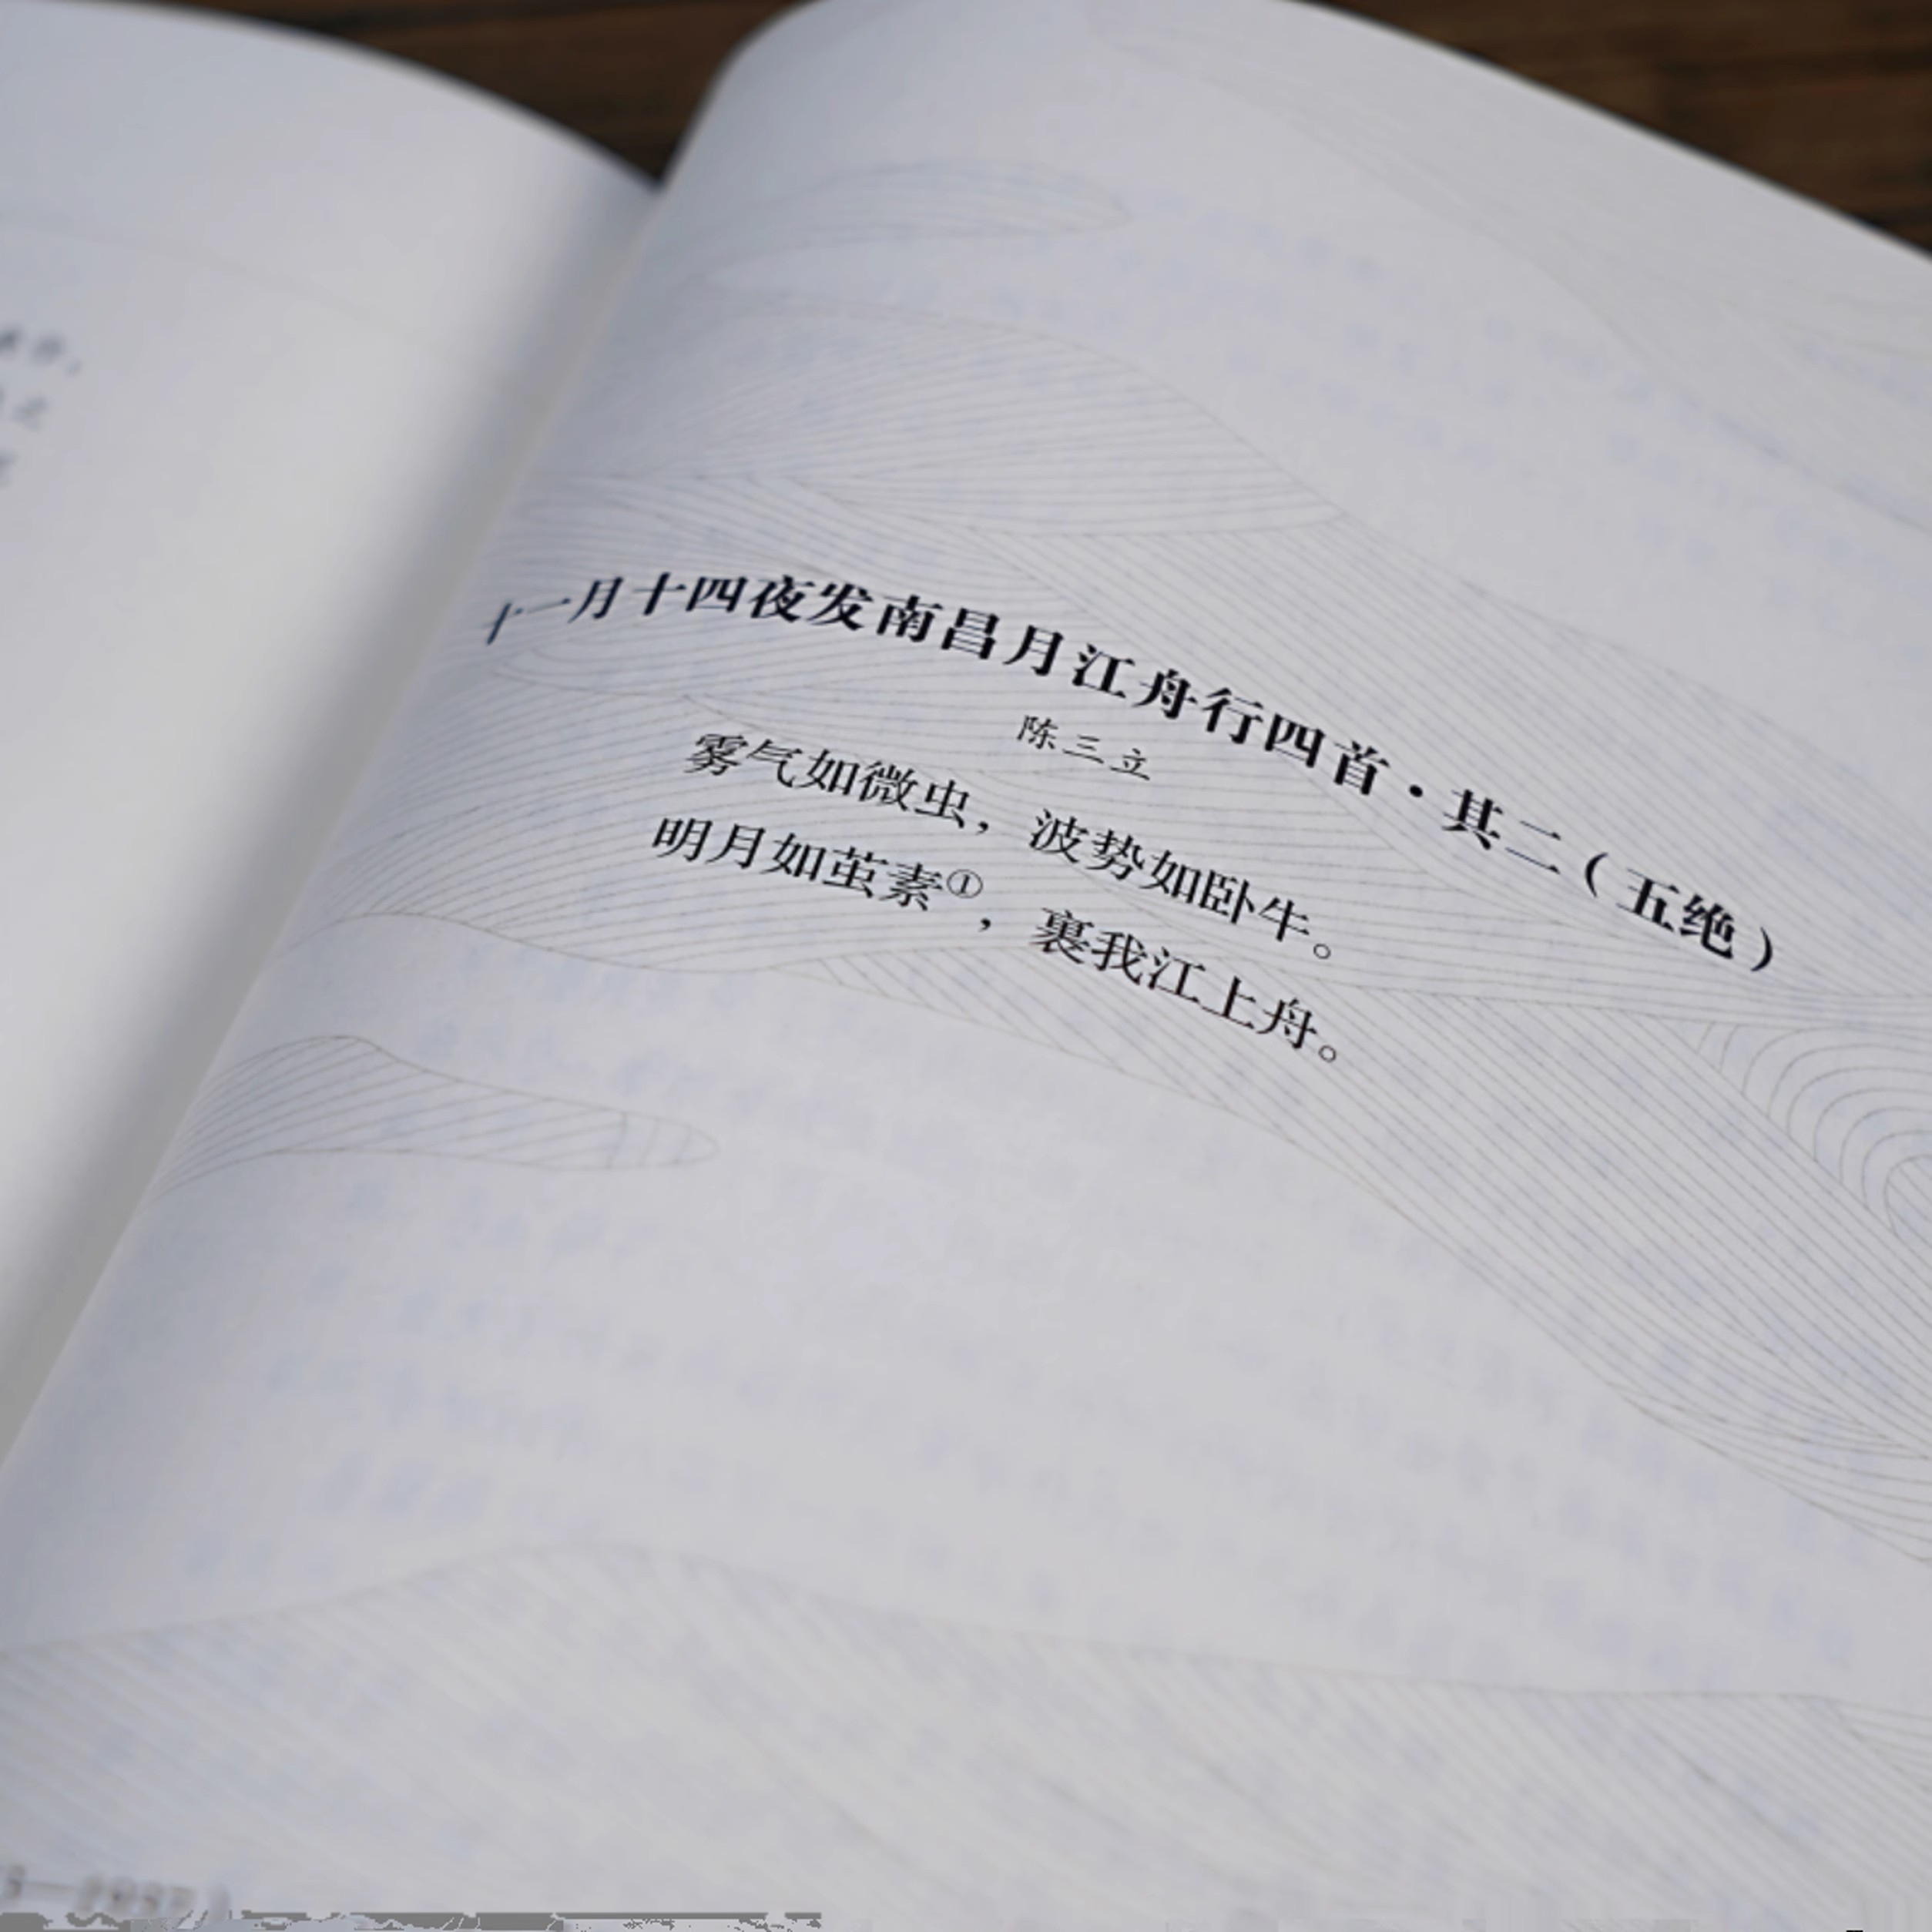 十一月十四夜发南昌月江舟行四首·其二（五绝）
陈三立
雾气如微虫，波势如卧牛。
明月如茧素①，裹我江上舟。